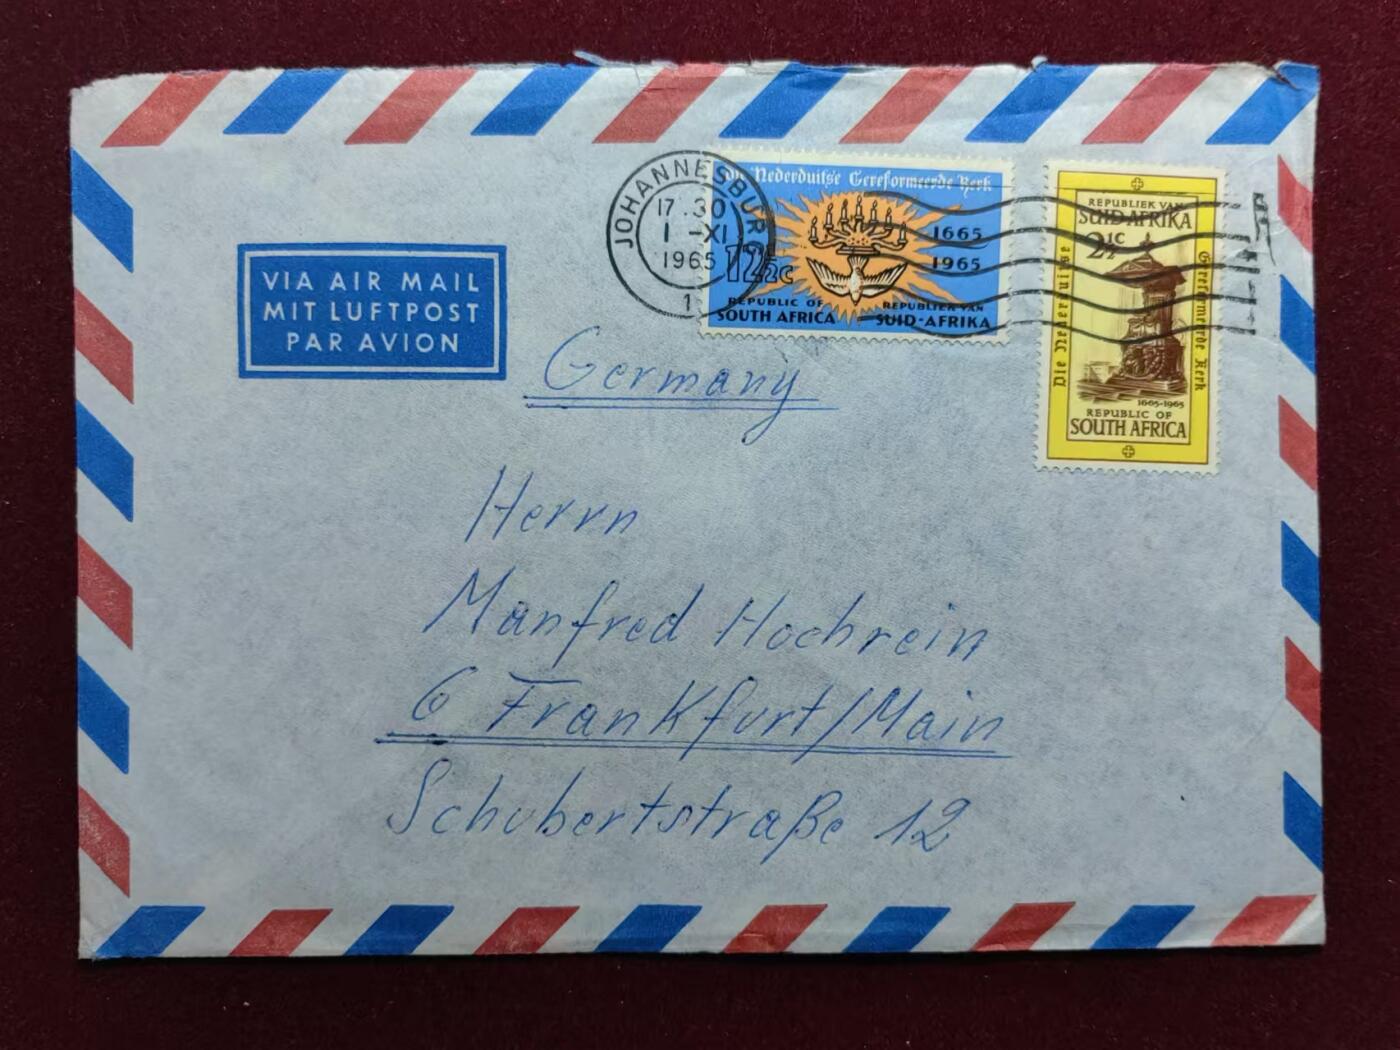 JOHANNESBURG
17.30
1 -XI
1965
1
Die Nederduitse Gereformeerde Kerk
1665
1965
12½c
REPUBLIC OF
SOUTH AFRICA
REPUBLIEK VAN
SUID-AFRIKA
REPUBLIEK VAN
SUID-AFRIKA
2½c
Die Nederduitse
Gereformeerde Kerk
1665-1965
REPUBLIC OF
SOUTH AFRICA
VIA AIR MAIL
MIT LUFTPOST
PAR AVION
Germany
Herrn
Manfred Hochrein
6 Frankfurt/Main
Schubertstraße 12